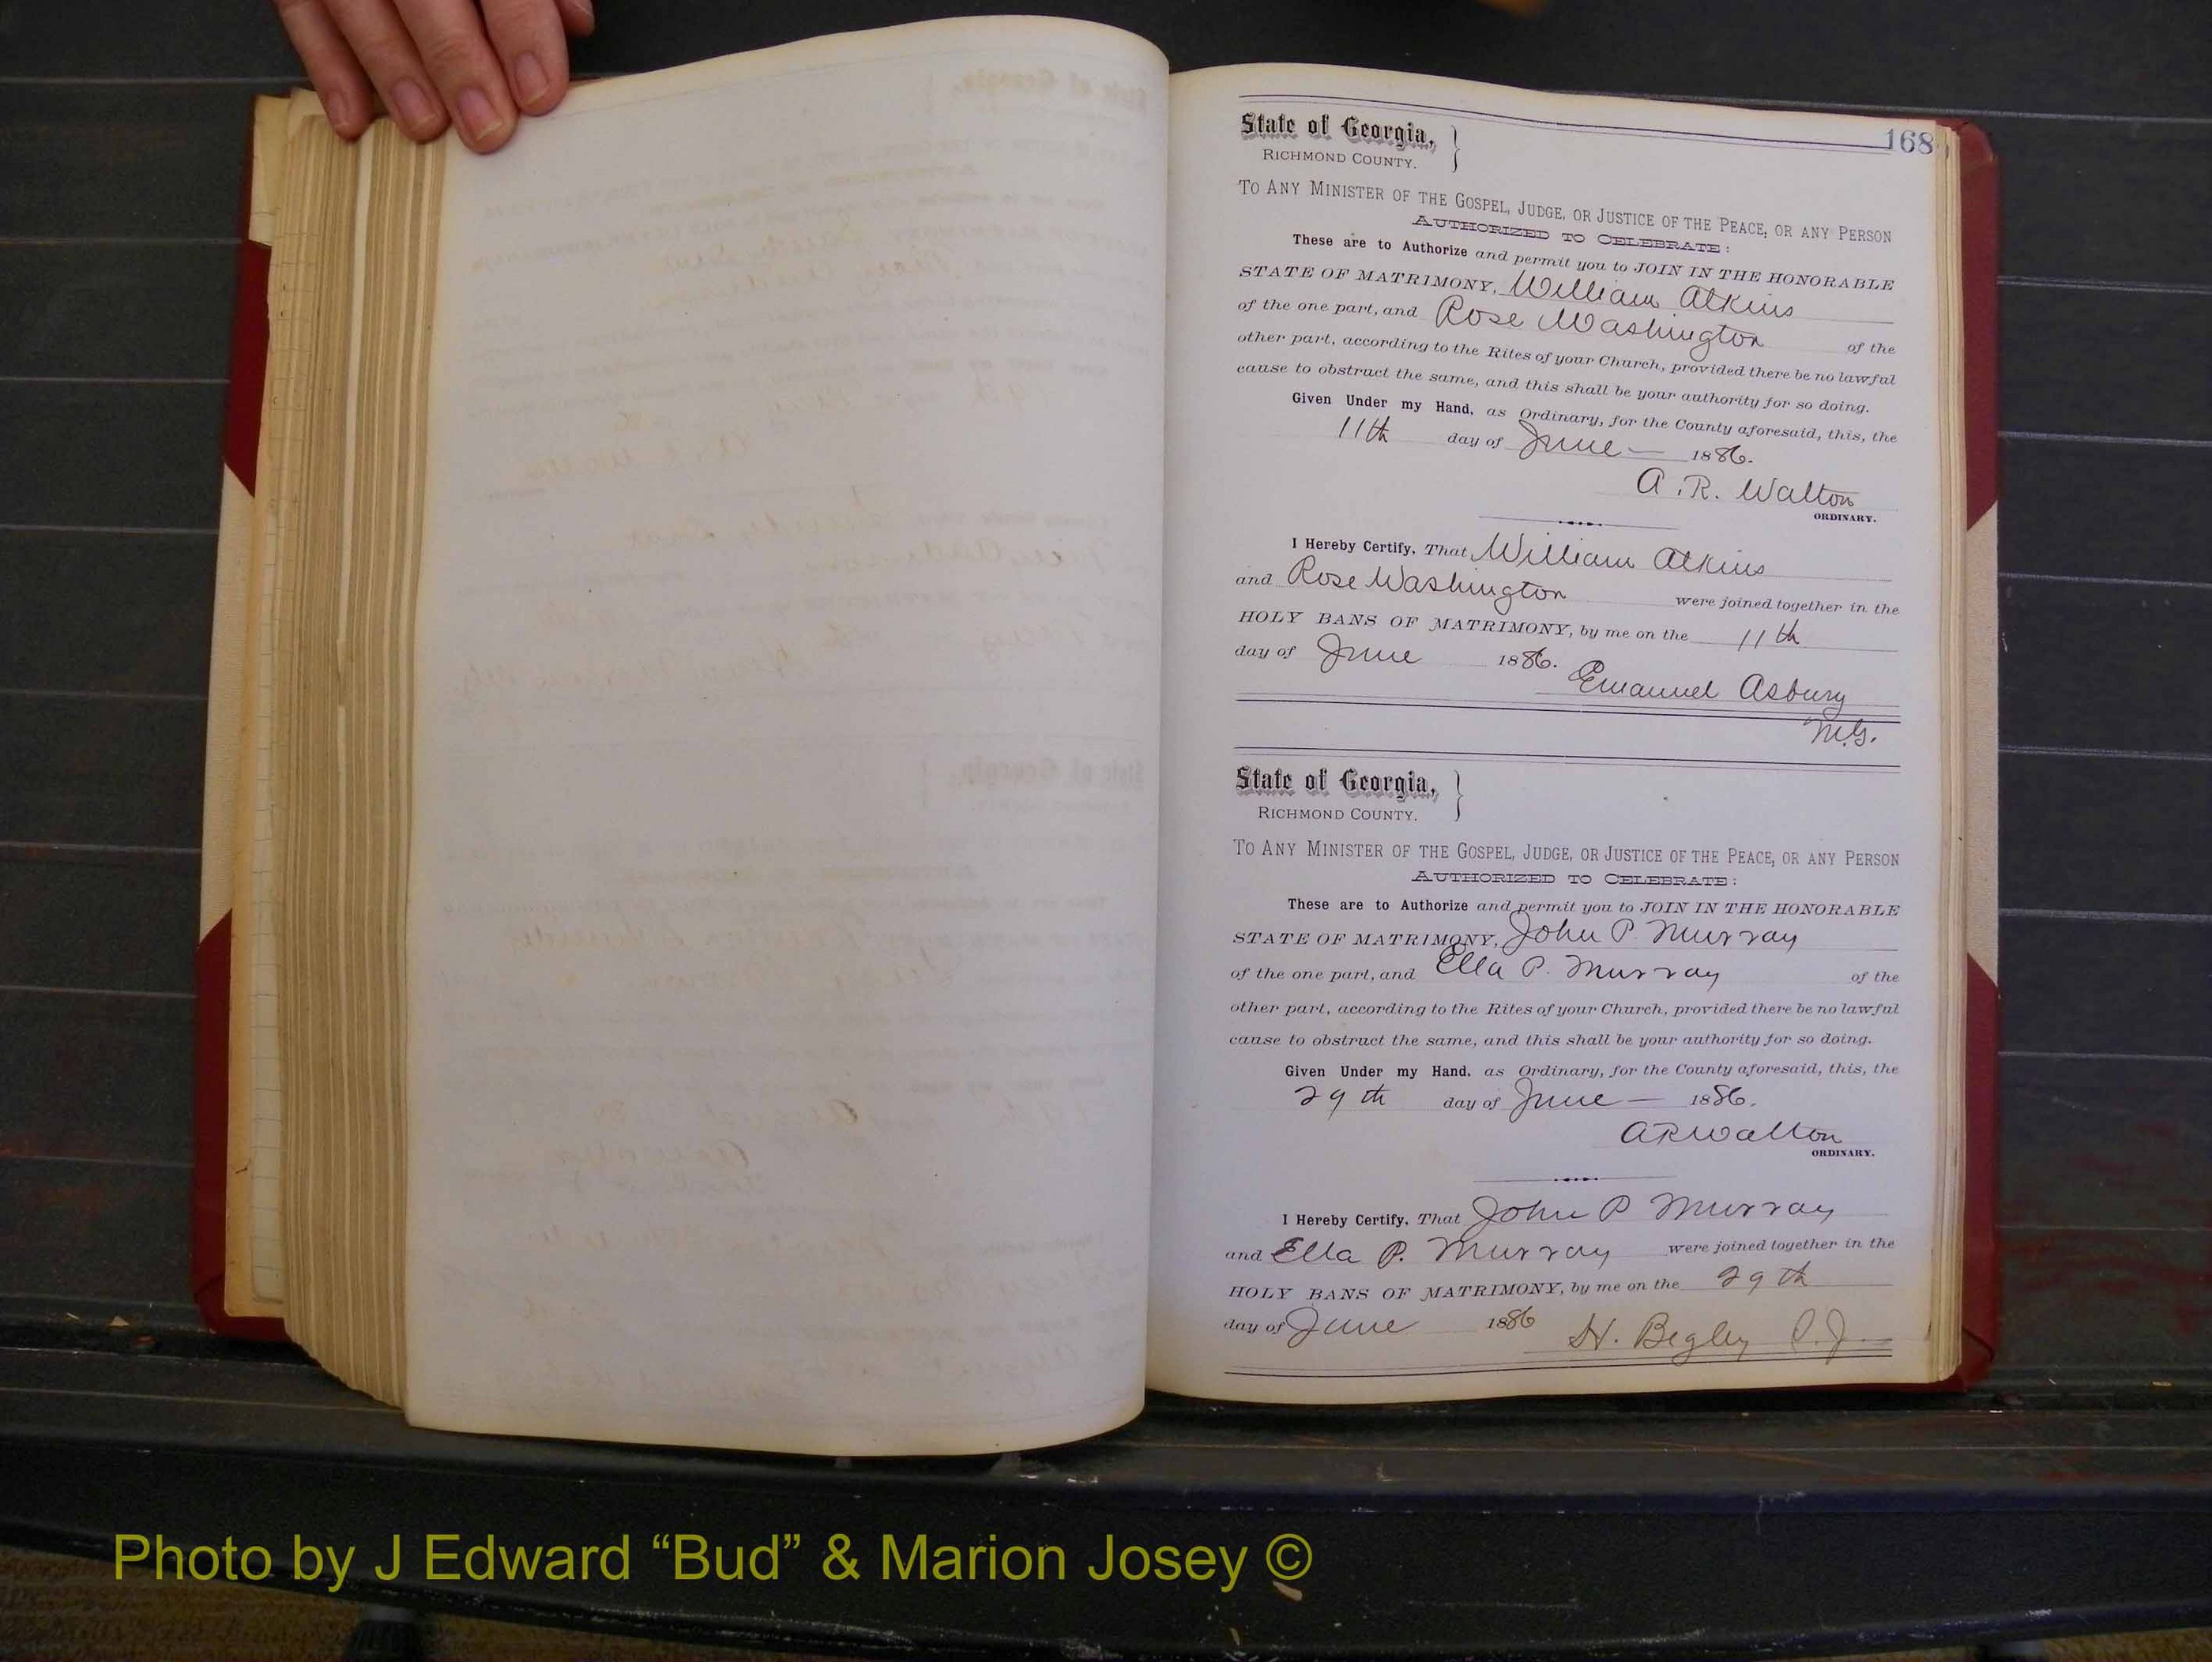 168
State of Georgia,
RICHMOND COUNTY.
TO ANY MINISTER OF THE GOSPEL, JUDGE, OR JUSTICE OF THE PEACE, OR ANY PERSON
AUTHORIZED TO CELEBRATE:
These are to Authorize and permit you to JOIN IN THE HONORABLE
STATE OF MATRIMONY, William Atkins
of the one part, and Rose Washington of the
other part, according to the Rites of your Church, provided there be no lawful
cause to obstruct the same, and this shall be your authority for so doing.
Given Under my Hand, as Ordinary, for the County aforesaid, this, the
11th day of June — 1886.
A. R. Walton
ORDINARY.
I Hereby Certify, That William Atkins
and Rose Washington were joined together in the
HOLY BANS OF MATRIMONY, by me on the 11th
day of June 1886.
Emanuel Asbury
M.G.
State of Georgia,
RICHMOND COUNTY.
TO ANY MINISTER OF THE GOSPEL, JUDGE, OR JUSTICE OF THE PEACE, OR ANY PERSON
AUTHORIZED TO CELEBRATE:
These are to Authorize and permit you to JOIN IN THE HONORABLE
STATE OF MATRIMONY, John P. Murray
of the one part, and Ella P. Murray of the
other part, according to the Rites of your Church, provided there be no lawful
cause to obstruct the same, and this shall be your authority for so doing.
Given Under my Hand, as Ordinary, for the County aforesaid, this, the
29th day of June — 1886.
A R Walton
ORDINARY.
I Hereby Certify, That John P Murray
and Ella P. Murray were joined together in the
HOLY BANS OF MATRIMONY, by me on the 29th
day of June 1886
H. Begley
Photo by J Edward “Bud” & Marion Josey ©